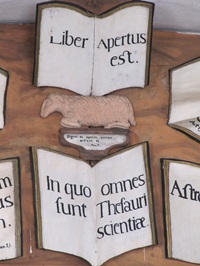 Liber Apertus
est.
In quo omnes
sunt Thesauri
scientiæ.
Astro